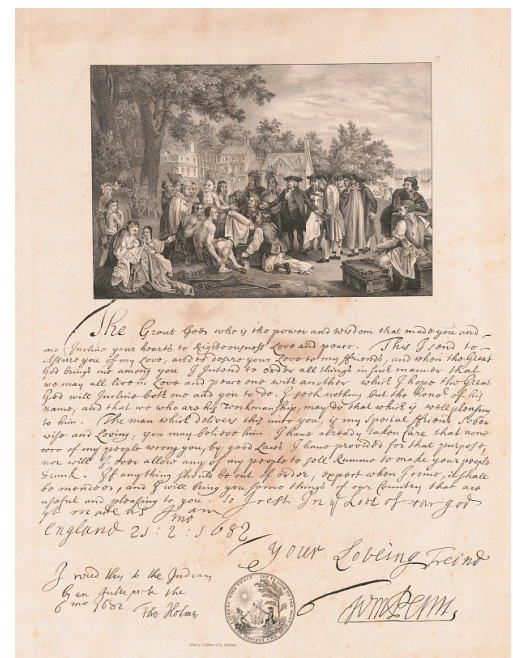 The Great God who is the power and wisdom that made you and
me Incline your hearts to Righteousness Love and peace. This I send to
Assure you of my Love, and to desire your Love to my ffriends, and when the Great
God brings me among you I Intend to order all things in such manner that
we may all live in Love and peace one with another which I hope the Great
God will Incline both me and you to do. I seek nothing but the honor of his
name, and that we who are his workmanship, may do that which is well pleasing
to him. The man which delivers this unto you, is my Special ffriend Sober
wise and Loving, you may believe him. I have already taken care that none
of my people wrong you, by good Laws I have provided for that purpose,
nor will I ever allow any of my people to sell Rumme to make your people
Drunk. If anything should be out of order, expect when I come, it shall
be mended, and I will bring you some things of our Country that are
useful and pleasing to you. So I rest In ye Love of our god
yt made us I am
England 21:2:1682
Your Loveing Freind
I read this to the Indians
by an
6 mo 1682 Tho Holme
Wm Penn